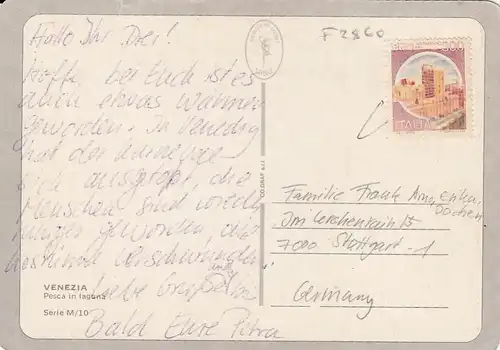 Hallo Ihr Drei!
Hoffe, bei Euch ist es
auch etwas wärmer
geworden. In Venedig
hat der
sich ausgetobt, die
Menschen sind wieder
ruhiger geworden und
verschwunden.
Liebe Grüße
Bald Eure Petra
VENEZIA
Pesca in laguna
Serie M/10
F 2860
ITALIA
Familie Frank
Im Lerchenrain 15
7000 Stuttgart-1
Germany